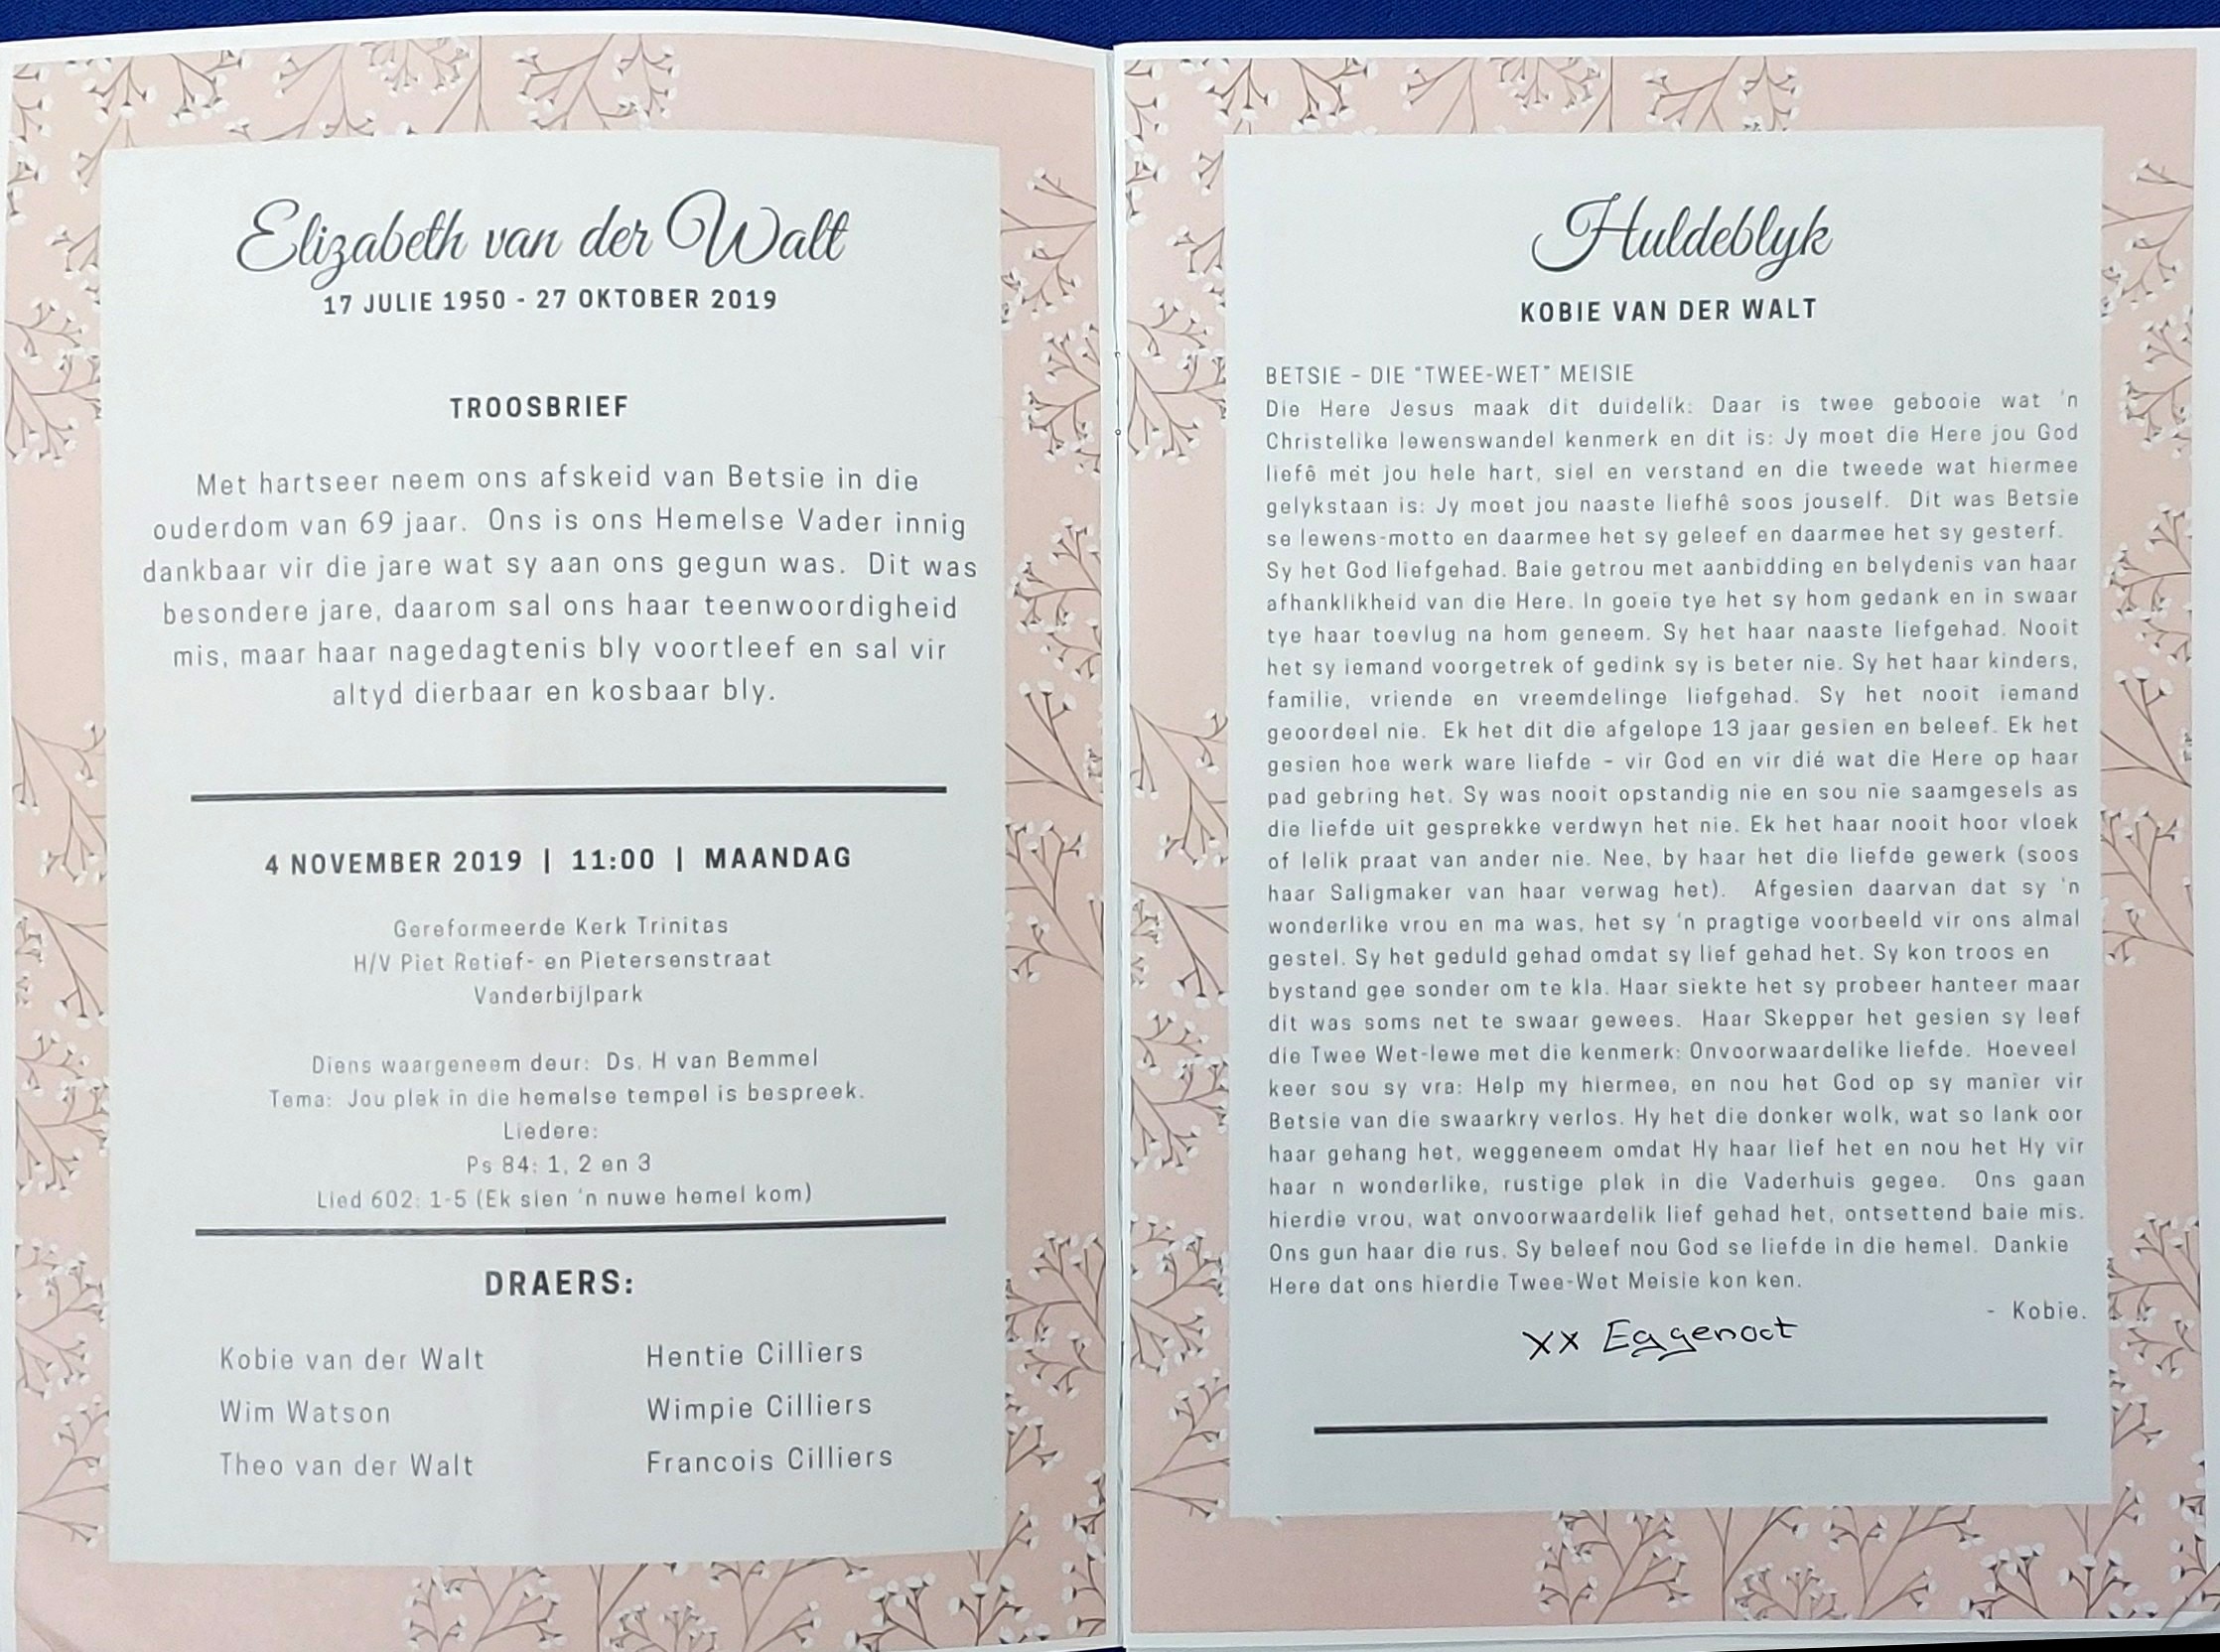 Elizabeth van der Walt
17 JULIE 1950 - 27 OKTOBER 2019
TROOSBRIEF
Met hartseer neem ons afskeid van Betsie in die
ouderdom van 69 jaar. Ons is ons Hemelse Vader innig
dankbaar vir die jare wat sy aan ons gegun was. Dit was
besondere jare, daarom sal ons haar teenwoordigheid
mis, maar haar nagedagtenis bly voortleef en sal vir
altyd dierbaar en kosbaar bly.
4 NOVEMBER 2019 | 11:00 | MAANDAG
Gereformeerde Kerk Trinitas
H/V Piet Retief- en Pietersenstraat
Vanderbijlpark
Diens waargeneem deur: Ds. H van Bemmel
Tema: Jou plek in die hemelse tempel is bespreek.
Liedere:
Ps 84: 1, 2 en 3
Lied 602: 1-5 (Ek sien 'n nuwe hemel kom)
DRAERS:
Kobie van der Walt
Wim Watson
Theo van der Walt
Hentie Cilliers
Wimpie Cilliers
Francois Cilliers
Huldeblyk
KOBIE VAN DER WALT
BETSIE – DIE "TWEE-WET" MEISIE
Die Here Jesus maak dit duidelik: Daar is twee gebooie wat 'n
Christelike lewenswandel kenmerk en dit is: Jy moet die Here jou God
liefê met jou hele hart, siel en verstand en die tweede wat hiermee
gelykstaan is: Jy moet jou naaste liefhê soos jouself. Dit was Betsie
se lewens-motto en daarmee het sy geleef en daarmee het sy gesterf.
Sy het God liefgehad. Baie getrou met aanbidding en belydenis van haar
afhanklikheid van die Here. In goeie tye het sy hom gedank en in swaar
tye haar toevlug na hom geneem. Sy het haar naaste liefgehad. Nooit
het sy iemand voorgetrek of gedink sy is beter nie. Sy het haar kinders,
familie, vriende en vreemdelinge liefgehad. Sy het nooit iemand
geoordeel nie. Ek het dit die afgelope 13 jaar gesien en beleef. Ek het
gesien hoe werk ware liefde – vir God en vir dié wat die Here op haar
pad gebring het. Sy was nooit opstandig nie en sou nie saamgesels as
die liefde uit gesprekke verdwyn het nie. Ek het haar nooit hoor vloek
of lelik praat van ander nie. Nee, by haar het die liefde gewerk (soos
haar Saligmaker van haar verwag het). Afgesien daarvan dat sy 'n
wonderlike vrou en ma was, het sy 'n pragtige voorbeeld vir ons almal
gestel. Sy het geduld gehad omdat sy lief gehad het. Sy kon troos en
bystand gee sonder om te kla. Haar siekte het sy probeer hanteer maar
dit was soms net te swaar gewees. Haar Skepper het gesien sy leef
die Twee Wet-lewe met die kenmerk: Onvoorwaardelike liefde. Hoeveel
keer sou sy vra: Help my hiermee, en nou het God op sy manier vir
Betsie van die swaarkry verlos. Hy het die donker wolk, wat so lank oor
haar gehang het, weggeneem omdat Hy haar lief het en nou het Hy vir
haar n wonderlike, rustige plek in die Vaderhuis gegee. Ons gaan
hierdie vrou, wat onvoorwaardelik lief gehad het, ontsettend baie mis.
Ons gun haar die rus. Sy beleef nou God se liefde in die hemel. Dankie
Here dat ons hierdie Twee-Wet Meisie kon ken.
- Kobie.
xx Eggenoot